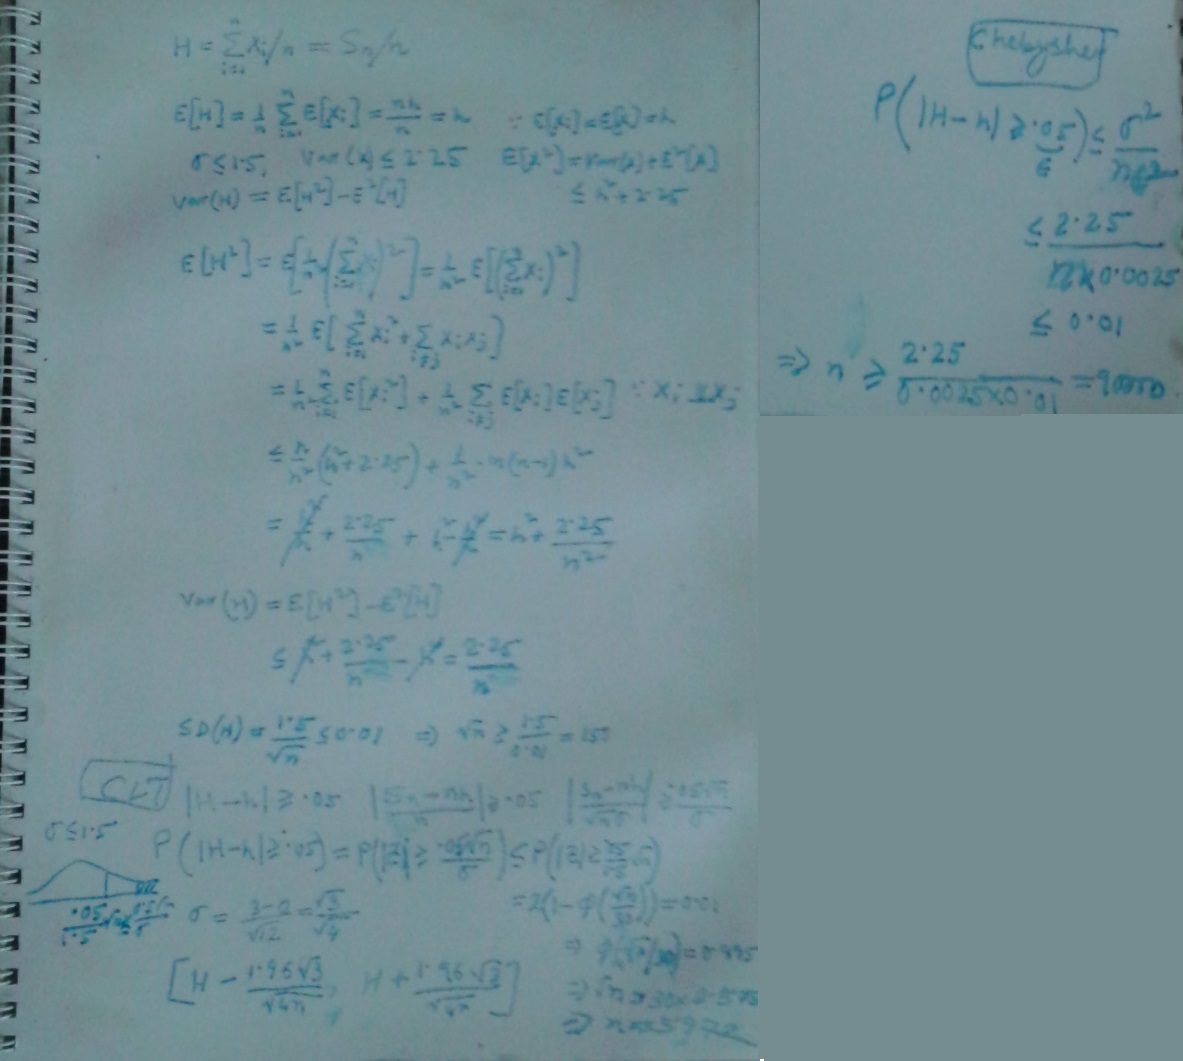 H = \sum_{i=1}^{n} x_i/n = S_n/n
E[H] = \frac{1}{n} \sum_{i=1}^{n} E[x_i] = \frac{nh}{n} = h ∵ E[x_i] = E[x] = h
σ ≤ 1.5, Var(x) ≤ 2.25 E[x^2] = Var(x) + E^2[x]
Var(H) = E[H^2] - E^2[H] ≤ h^2 + 2.25
E[H^2] = E[\frac{1}{n^2} (\sum_{i=1}^{n} x_i)^2] = \frac{1}{n^2} E[(\sum_{i=1}^{n} x_i)^2]
= \frac{1}{n^2} E[\sum_{i=1}^{n} x_i^2 + \sum_{i≠j} x_i x_j]
= \frac{1}{n^2} \sum_{i=1}^{n} E[x_i^2] + \frac{1}{n^2} \sum_{i≠j} E[x_i] E[x_j] ∵ x_i ⊥⊥ x_j
≤ \frac{n}{n^2} (h^2 + 2.25) + \frac{1}{n^2} · n(n-1) h^2
= \frac{h^2}{n} + \frac{2.25}{n} + h^2 - \frac{h^2}{n} = h^2 + \frac{2.25}{n^2}
Var(H) = E[H^2] - E^2[H]
≤ h^2 + \frac{2.25}{n} - h^2 = \frac{2.25}{n}
SD(H) = \frac{1.5}{\sqrt{n}} ≤ 0.01 ⇒ \sqrt{n} ≥ \frac{1.5}{0.01} = 150
CLT
|H - h| ≥ .05 |\frac{S_n - nh}{n}| ≥ .05 |\frac{S_n - nh}{\sqrt{n}σ}| ≥ \frac{.05\sqrt{n}}{σ}
σ ≤ 1.5
P(|H - h| ≥ .05) = P(|Z| ≥ \frac{.05\sqrt{n}}{σ}) ≤ P(|Z| ≥ \frac{.05}{1.5}\sqrt{n})
= 2(1 - φ(\frac{\sqrt{n}}{30})) = 0.01
σ = \frac{3-0}{\sqrt{12}} = \frac{\sqrt{3}}{\sqrt{4}}
⇒ φ(\sqrt{n}/30) = 0.995
[H - \frac{1.96\sqrt{3}}{\sqrt{4n}}, H + \frac{1.96\sqrt{3}}{\sqrt{4n}}]
Chebyshev
P(|H - h| ≥ .05) ≤ \frac{σ^2}{nε^2}
ε
≤ \frac{2.25}{n×0.0025}
≤ 0.01
⇒ n ≥ \frac{2.25}{0.0025×0.01} = 90000